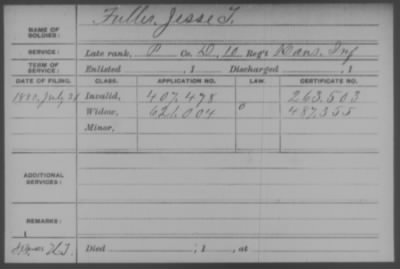 NAME OF SOLDIER: Fuller, Jesse T.
SERVICE: Late rank, P Co. D, 10 Reg't Kans. Inf
TERM OF SERVICE: Enlisted , 1 Discharged , 1
DATE OF FILING. CLASS. APPLICATION NO. LAW. CERTIFICATE NO.
1880, July 28 Invalid, 407.498 263.503
Widow, 621.004 487.355
Minor,
ADDITIONAL SERVICES:
REMARKS:
Died ; 1 , at